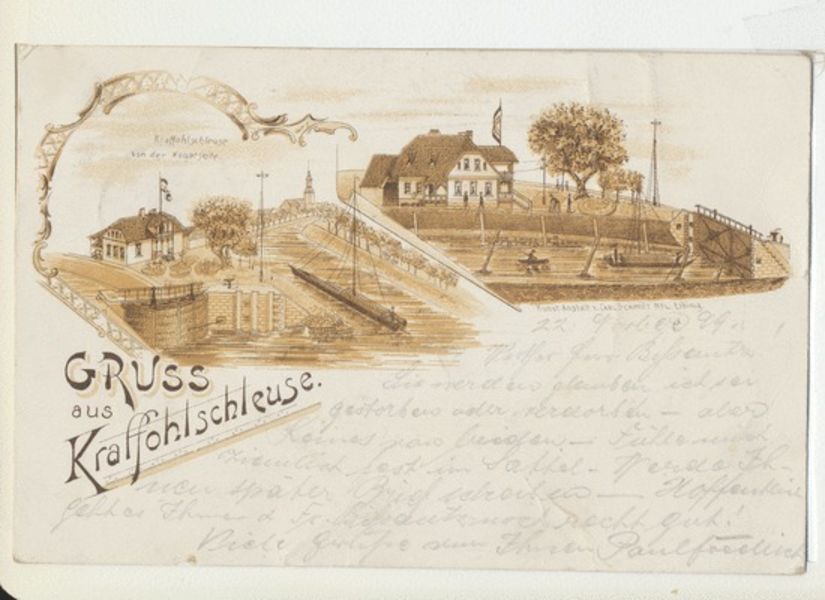 Kraffohlschleuse
von der
Kunst-Anstalt v. Carl Schmidt Nfl. Elbing
GRUSS
aus
Kraffohlschleuse.
22 99
Sie werden glauben ich sei
gestorben oder verdorben – aber
Keines von beiden – Fühle mich
ziemlich fest im Sattel – Werde Ih-
nen später Brief schreiben — Hoffentlich
geht es Ihnen & Fr. noch recht gut!
Viele Grüße von Ihrem Paul